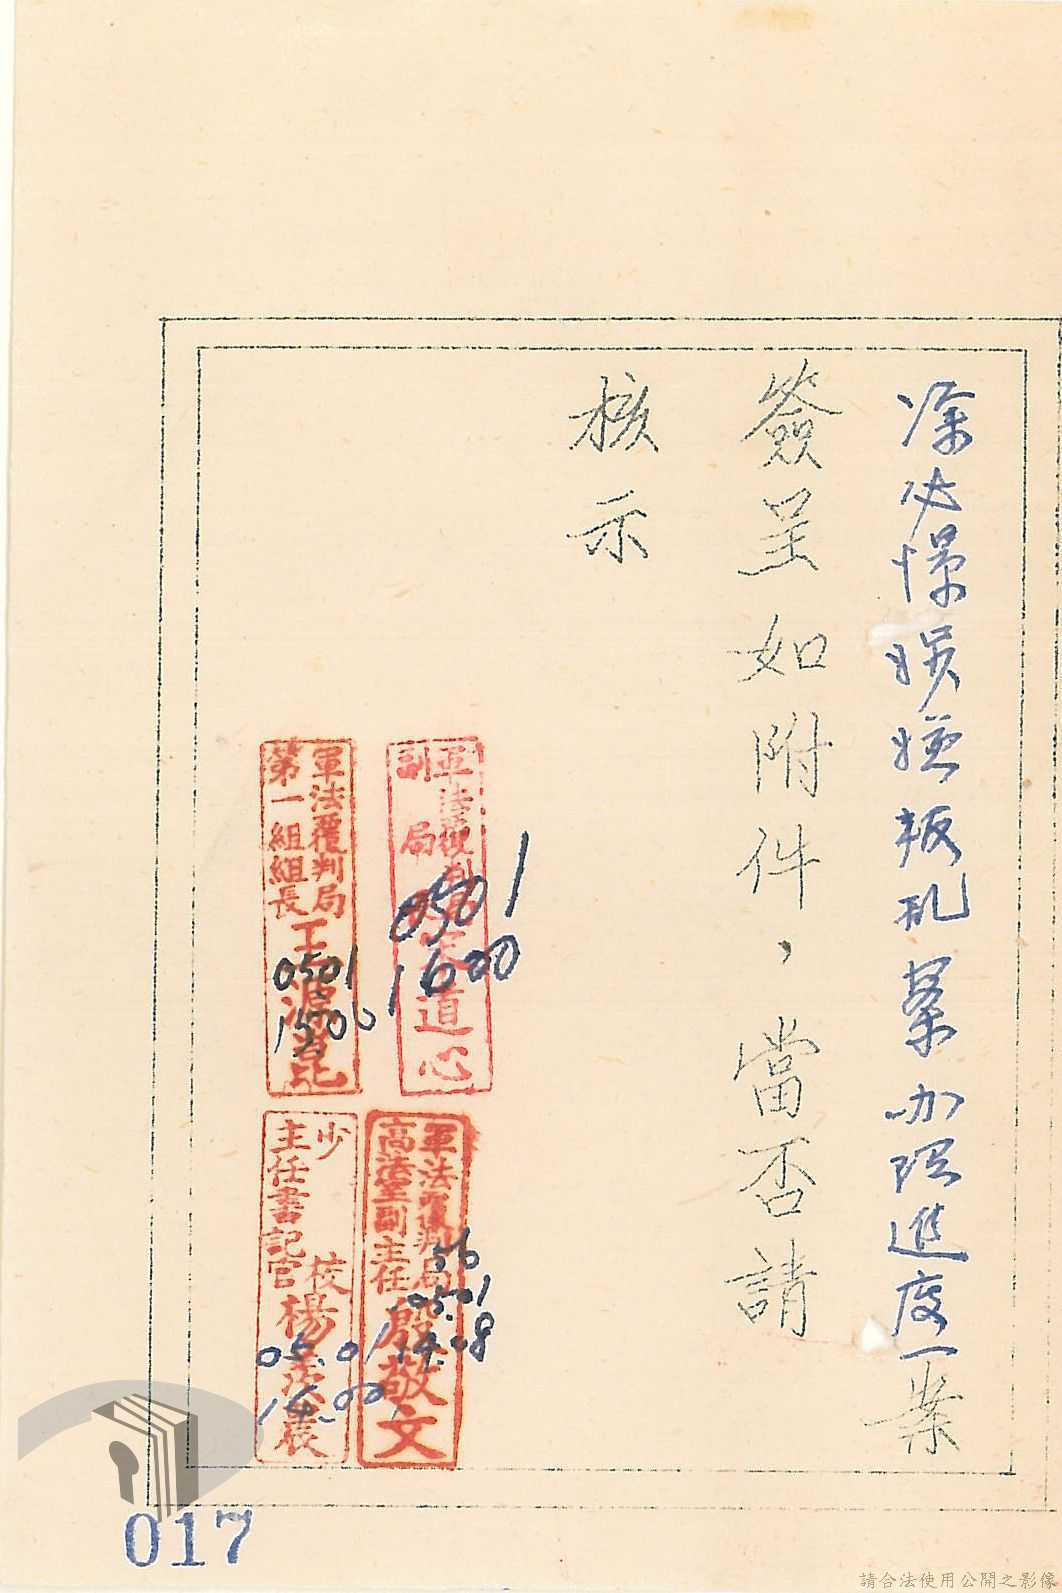 涂必憬誤嫌叛乱案办理進度一案
簽呈如附件，當否請
核示
軍法覆判局
副局
道心
0501
1600
軍法覆判局
第一組組長
王源
0501
1506
軍法覆判局
高法室副主任
殷敬文
56
05.01
14.08
少校
主任書記官
楊
05.01
017
請合法使用公開之影像